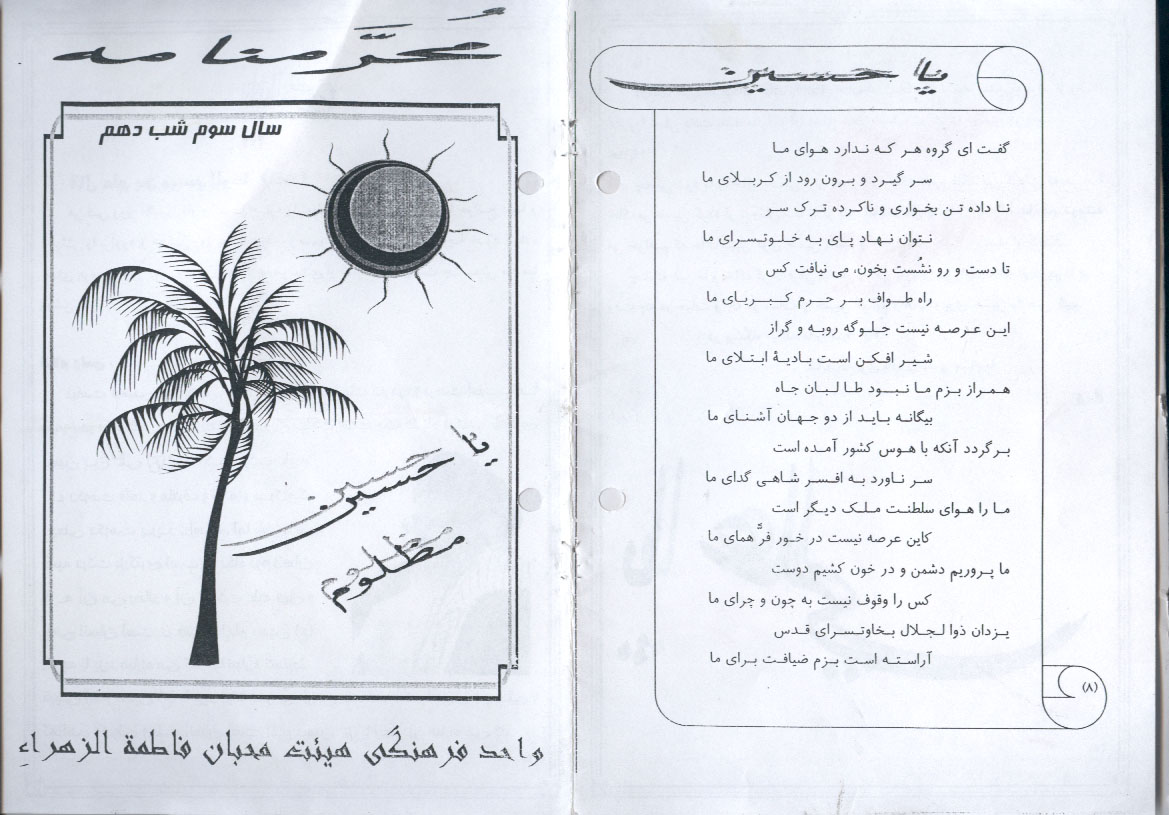 محرّمنامه
سال سوم شب دهم
یا حسین
مظلوم
واحد فرهنگی هیئت محبان فاطمة الزهراء
یا حسین
گفت ای گروه هر که ندارد هوای ما
سر گیرد و برون رود از کربلای ما
نا داده تن بخواری و ناکرده ترک سر
نتوان نهاد پای به خلوتسرای ما
تا دست و رو نشُست بخون، می نیافت کس
راه طواف بر حرم کبریای ما
این عرصه نیست جلوگه روبه و گراز
شیر افکن است بادیهٔ ابتلای ما
همراز بزم ما نبود طالبان جاه
بیگانه باید از دو جهان آشنای ما
برگردد آنکه با هوس کشور آمده است
سر ناورد به افسر شاهی گدای ما
ما را هوای سلطنت ملک دیگر است
کاین عرصه نیست در خور فرِّ همای ما
ما پروریم دشمن و در خون کشیم دوست
کس را وقوف نیست به چون و چرای ما
یزدان ذوالجلال بخلوتسرای قدس
آراسته است بزم ضیافت برای ما
(۸)